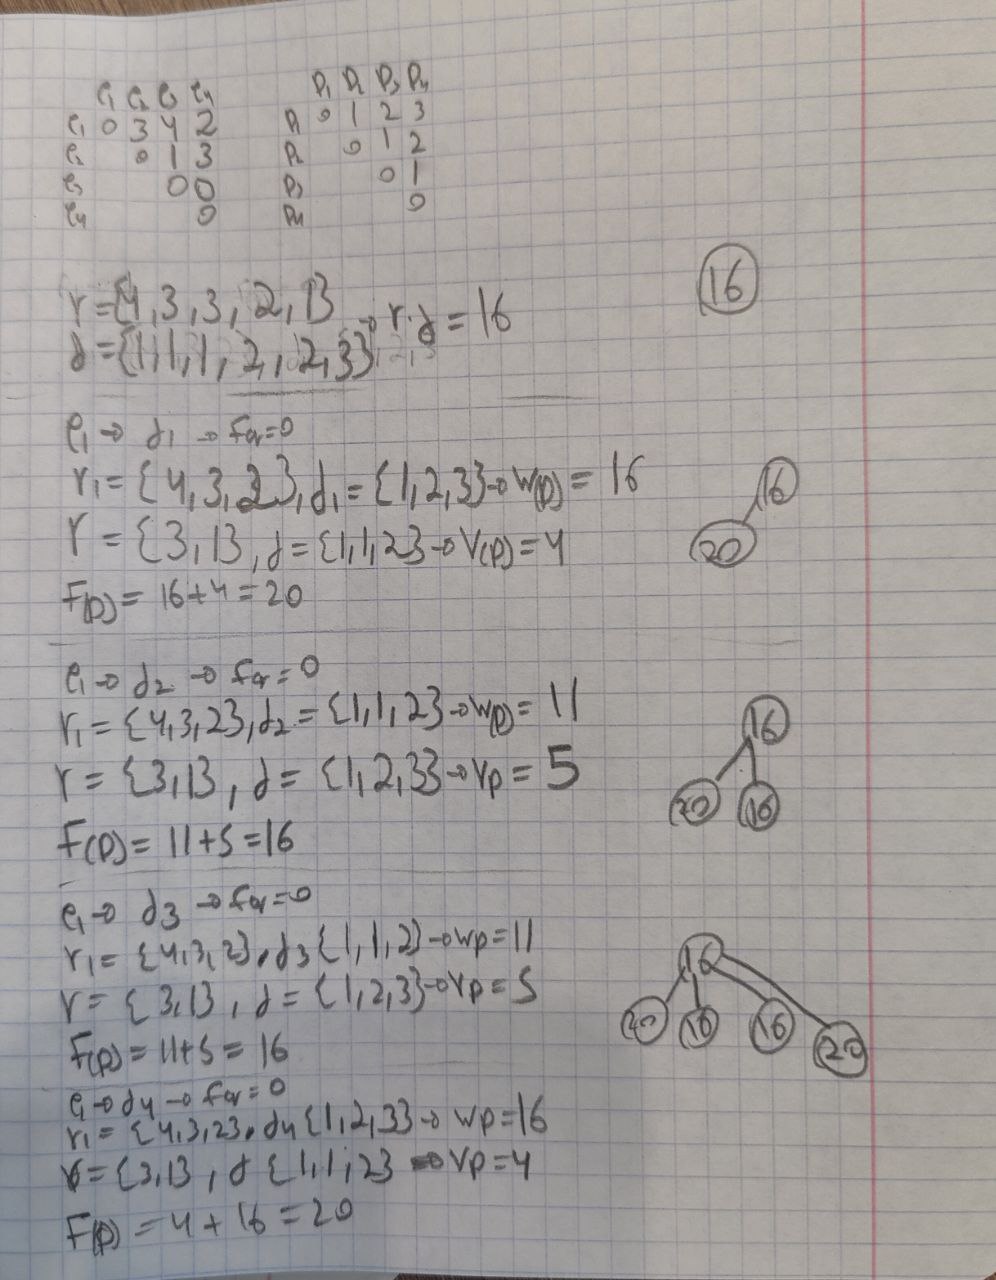 e₁ e₂ e₃ e₄ P₁ P₂ P₃ P₄
e₁ 0 3 4 2 P₁ 0 1 2 3
e₂ 0 1 3 P₂ 0 1 2
e₃ 0 0 P₃ 0 1
e₄ 0 P₄ 0
16
r = {4, 3, 3, 2, 1} → r·d = 16
d = {1, 1, 1, 2, 2, 3}
e₁ → d₁ → Fq = 0
r₁ = {4, 3, 2}, d₁ = {1, 2, 3} → W(p) = 16
r = {3, 1}, d = {1, 1, 2} → V(p) = 4
F(p) = 16 + 4 = 20
16
20
e₁ → d₂ → Fq = 0
r₁ = {4, 3, 2}, d₂ = {1, 1, 2} → W(p) = 11
r = {3, 1}, d = {1, 2, 3} → Vp = 5
F(p) = 11 + 5 = 16
16
20 16
e₁ → d₃ → Fq = 0
r₁ = {4, 3, 2} · d₃ {1, 1, 2} → Wp = 11
r = {3, 1}, d = {1, 2, 3} → Vp = 5
F(p) = 11 + 5 = 16
16
20 16 16 20
e₁ → d₄ → Fq = 0
r₁ = {4, 3, 2} · d₄ {1, 2, 3} → Wp = 16
r = {3, 1}, d {1, 1, 2} → Vp = 4
F(p) = 4 + 16 = 20